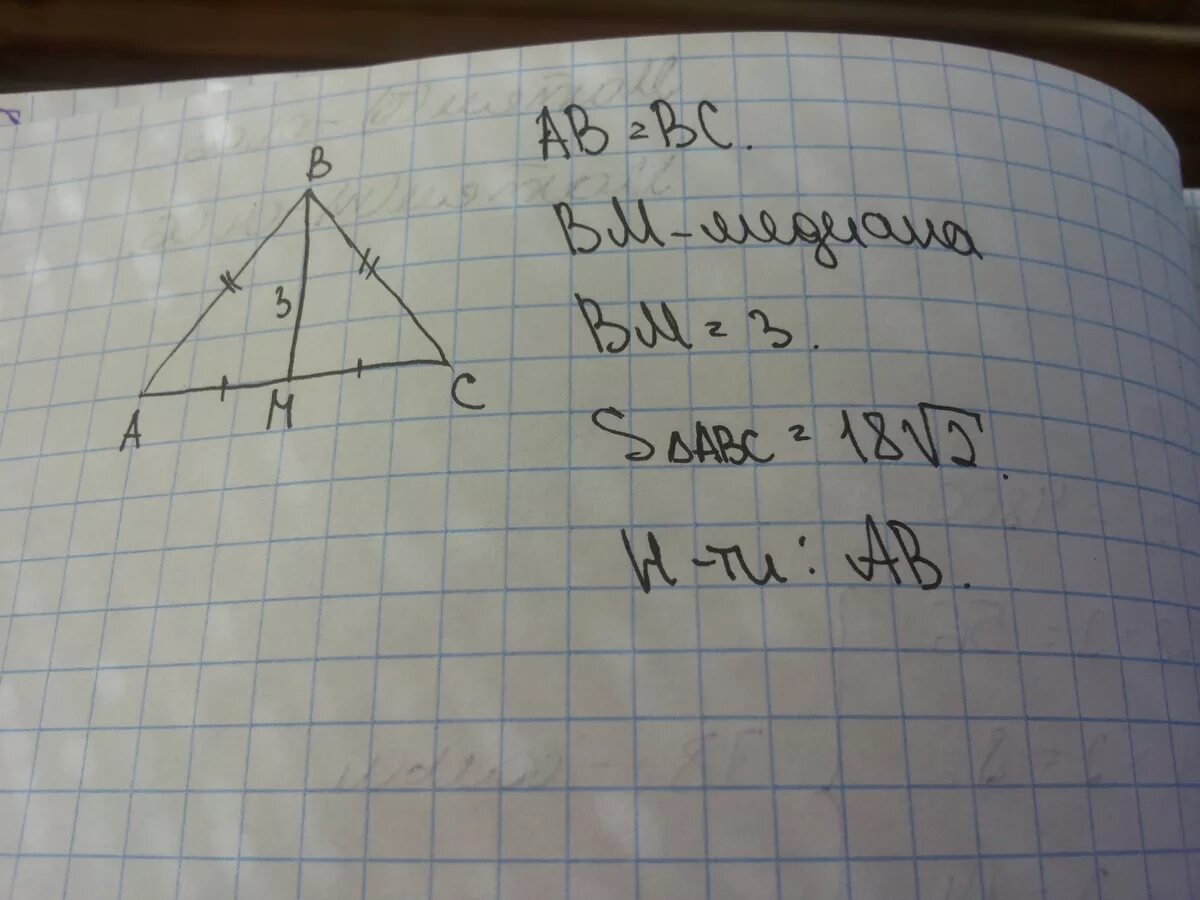 AB = BC.
BM - медиана
BM = 3.
S△ABC = 18√2.
Н-ти: AB.
B
3
A
M
C